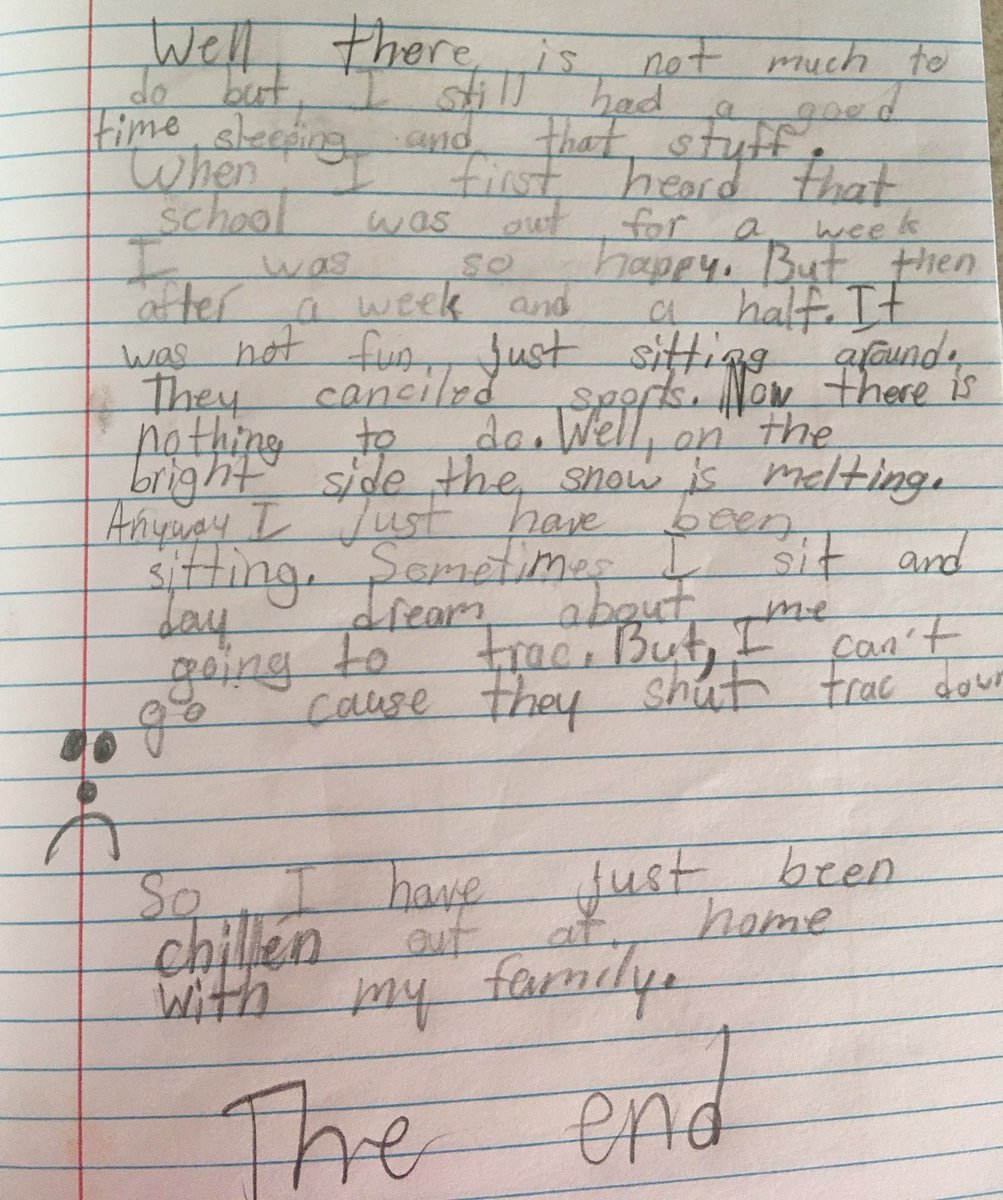 Well there is not much to
do but, I still had a good
time sleeping and that stuff.
When I first heard that
school was out for a week
I was so happy. But then
after a week and a half. It
was not fun, just sitting around.
They canciled sports. Now there is
nothing to do. Well, on the
bright side the snow is melting.
Anyway I just have been
sitting. Sometimes I sit and
day dream about me
going to trac. But, I can't
go cause they shut trac down
So I have just been
chillen out at home
with my family.
The end